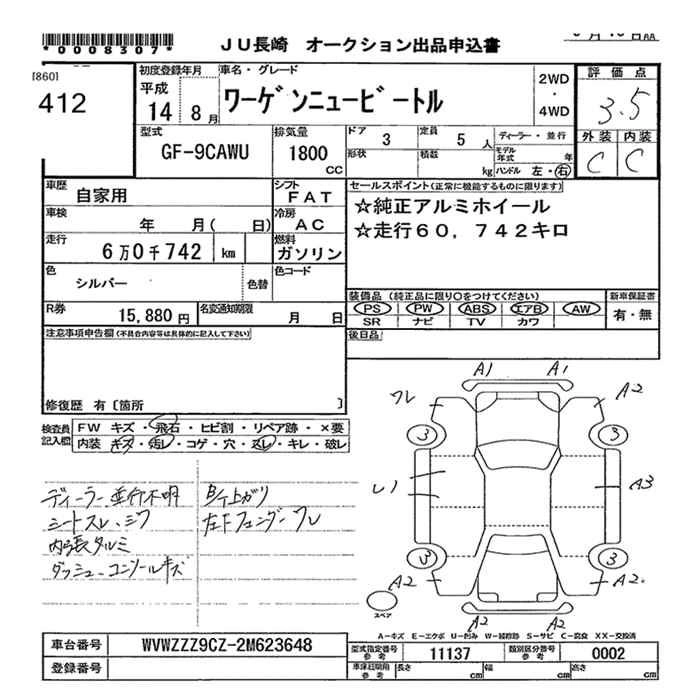 *0008307*
JU長崎 オークション出品申込書
[860]
412
初度登録年月
平成
14 8 月
車名・グレード
ワーゲンニュービートル
2WD
・
4WD
評価点
3.5
型式
GF-9CAWU
排気量
1800 CC
ドア 3
定員 5 人
形状
積数 kg
ディーラー・並行
モデル年式 年
ハンドル 左・右
外装 内装
C C
車歴
自家用
シフト
FAT
車検
年 月( 日)
冷房
AC
走行
6万0千742 km
燃料
ガソリン
色
シルバー
色替
色コード
R券
15,880 円
名変通知期限
月 日
セールスポイント(正常に機能するものに限ります)
☆純正アルミホイール
☆走行60,742キロ
装備品(純正品に限り○をつけてください)
PS PW ABS エアB AW
SR ナビ TV カワ
新車保証書
有・無
後日品
注意事項申告欄(不具合内容等は具体的に記入して下さい)
修復歴 有〔箇所 〕
検査員記入欄
FW キズ・飛石・ヒビ割・リペア跡・×要
内装 キズ・汚レ・コゲ・穴・スレ・キレ・破レ
ディーラー並行不明
シートスレ、シワ
内張タルミ
ダッシュ・コンソールキズ
左Fフェンダーワレ
A1 A1
ワレ A2
3 3
A3
3 3
A2 A2
スペア
A2 A2
A-キズ E-エクボ U-凹み W-補修跡 S-サビ C-腐食 XX-交換済
車台番号 WVWZZZ9CZ-2M623648
登録番号
型式指定番号 参考 11137
類別区分番号 参考 0002
車庫証明用 参考 長さ cm 幅 cm 高さ cm